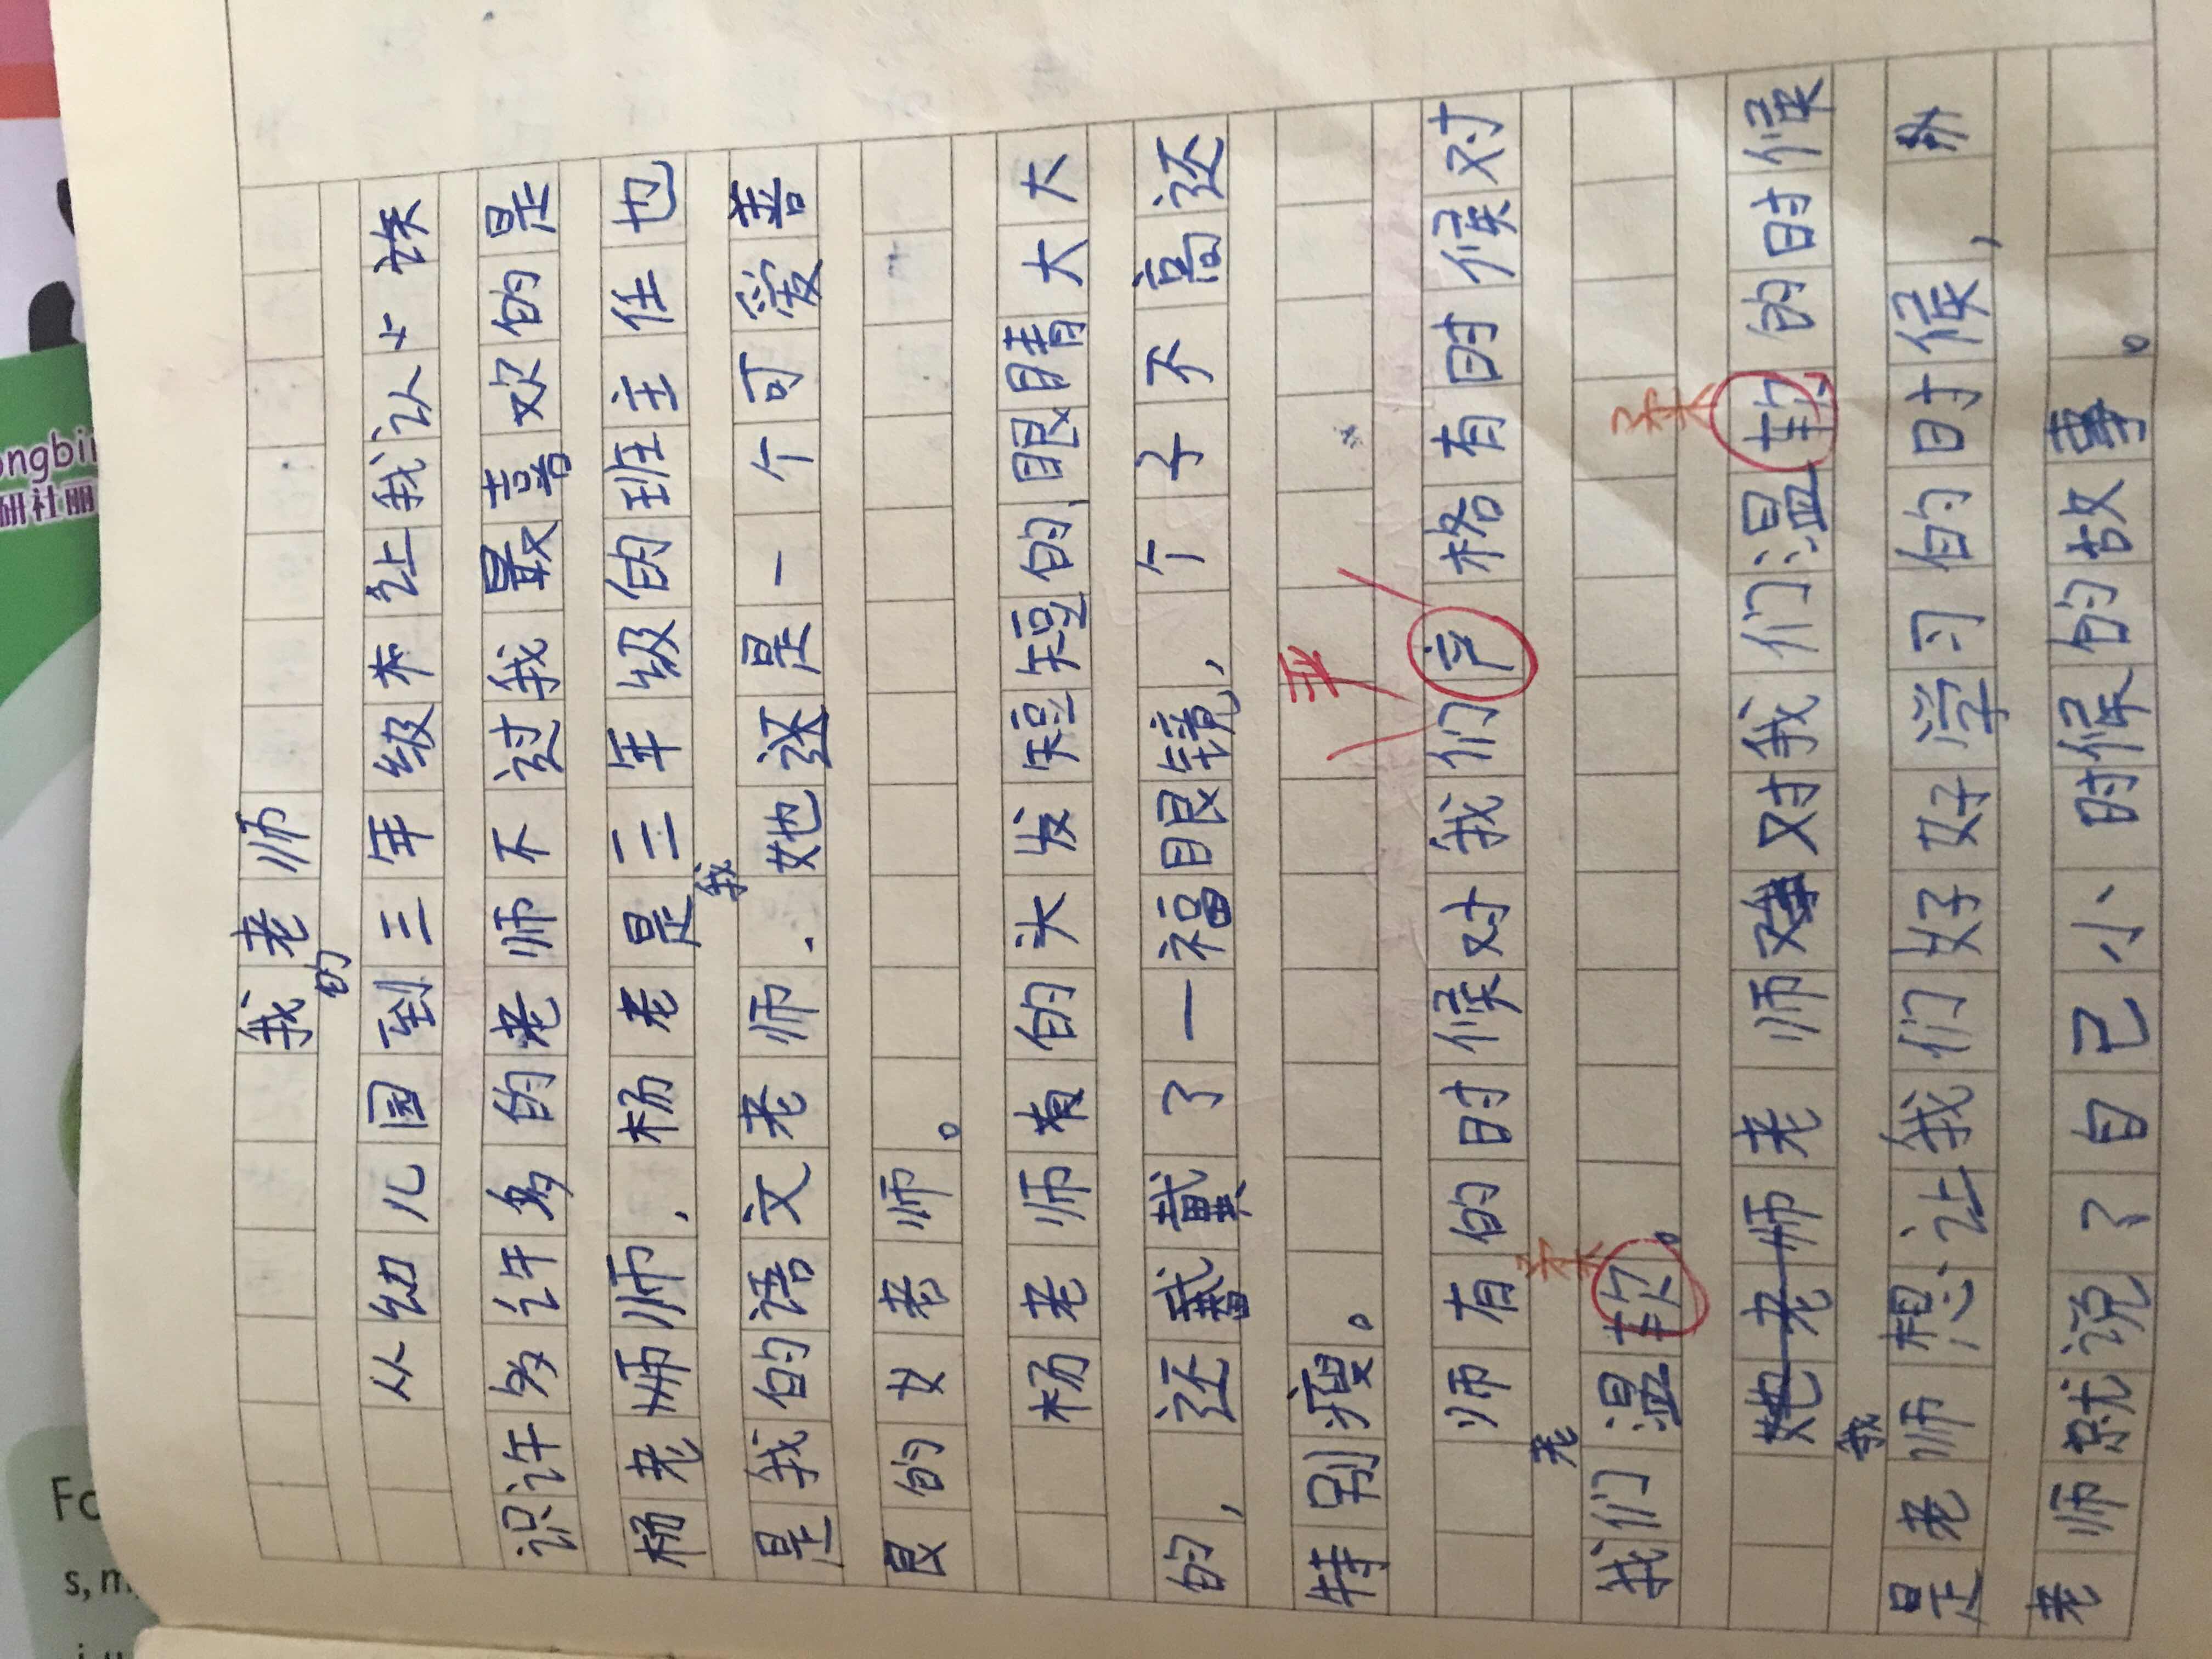 我的老师
从幼儿园到三年级本让我认识
识许多许多的老师不过我最喜欢的是
杨老师师，杨老是三年级的班主任也
是我的语文老师.她还是一个可爱善
良的女老师。
杨老师有的头发短短的眼睛大大
的，还戴戴了一福眼镜，个子不高还
特别瘦。
师有的时候对我们严格有时候对
严
老
柔
我们温软。
柔
她老师老师对对我们温软的时候
我
是老师想让我们好好学习的时候，
老师就说了自己小时候的故事。
ongbin
研社丽
Fo
s, m